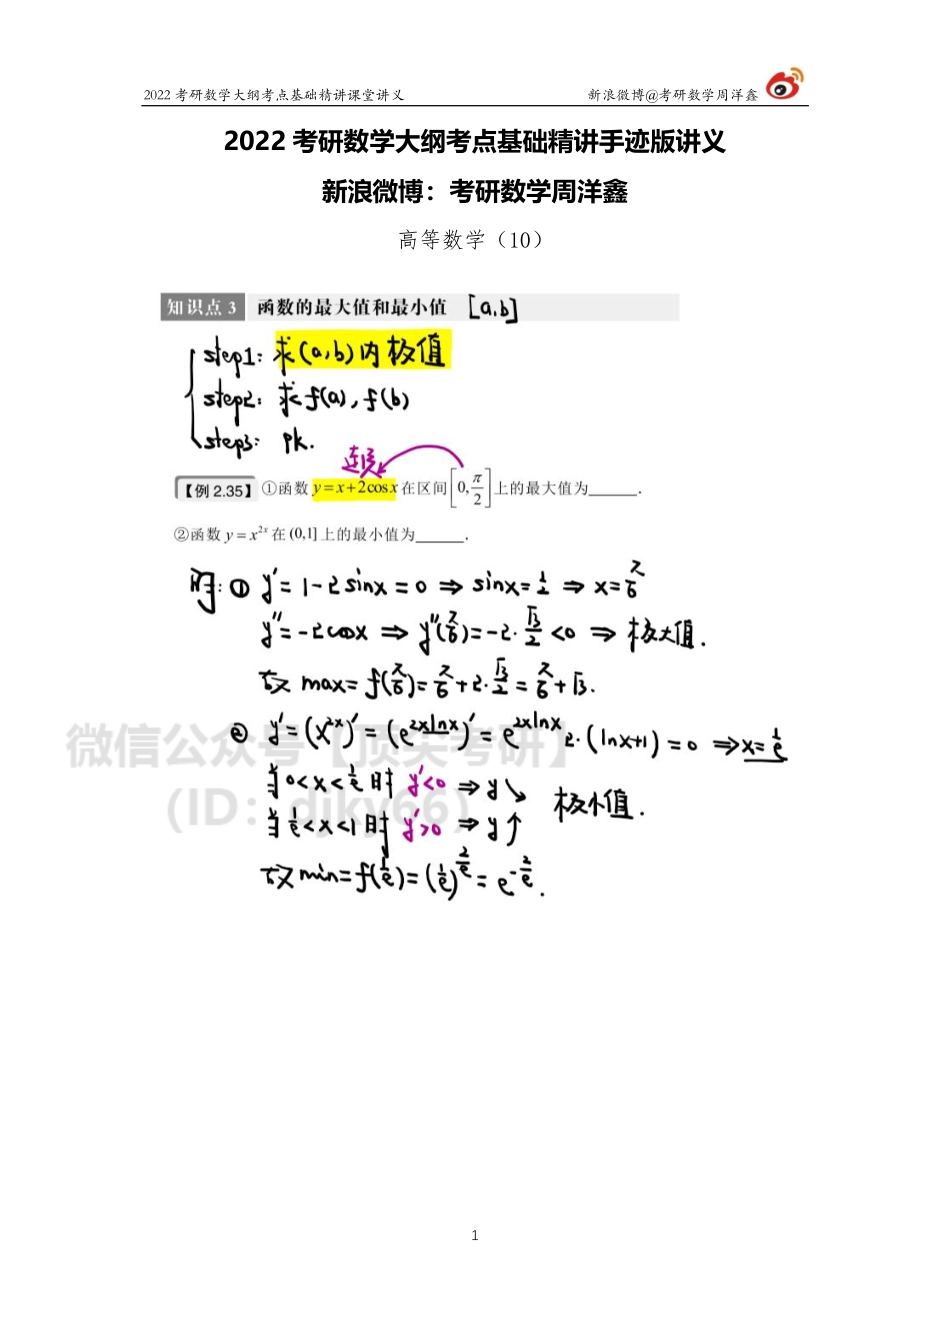 2022 考研数学大纲考点基础精讲课堂讲义 新浪微博@考研数学周洋鑫
2022 考研数学大纲考点基础精讲手迹版讲义
新浪微博：考研数学周洋鑫
高等数学（10）
知识点 3 函数的最大值和最小值 [a,b]
step1: 求(a,b)内极值
step2: 求f(a), f(b)
step3: pk.
连续
【例 2.35】①函数 y=x+2cosx 在区间[0,π/2]上的最大值为______.
②函数 y=x^{2x} 在 (0,1] 上的最小值为______.
解: ① y'=1-2sinx=0 ⇒ sinx=1/2 ⇒ x=π/6
y''=-2cosx ⇒ y''(π/6)=-2·√3/2<0 ⇒ 极大值.
故 max=f(π/6)=π/6+2·√3/2=π/6+√3.
② y'=(x^{2x})'=(e^{2xlnx})'=e^{2xlnx}·2·(lnx+1)=0 ⇒ x=1/e
当0<x<1/e时 y'<0 ⇒ y↘
极小值.
当1/e<x<1时 y'>0 ⇒ y↑
故 min=f(1/e)=(1/e)^{2/e}=e^{-2/e}.
微信公众号【顶尖考研】
(ID：djky66)
1